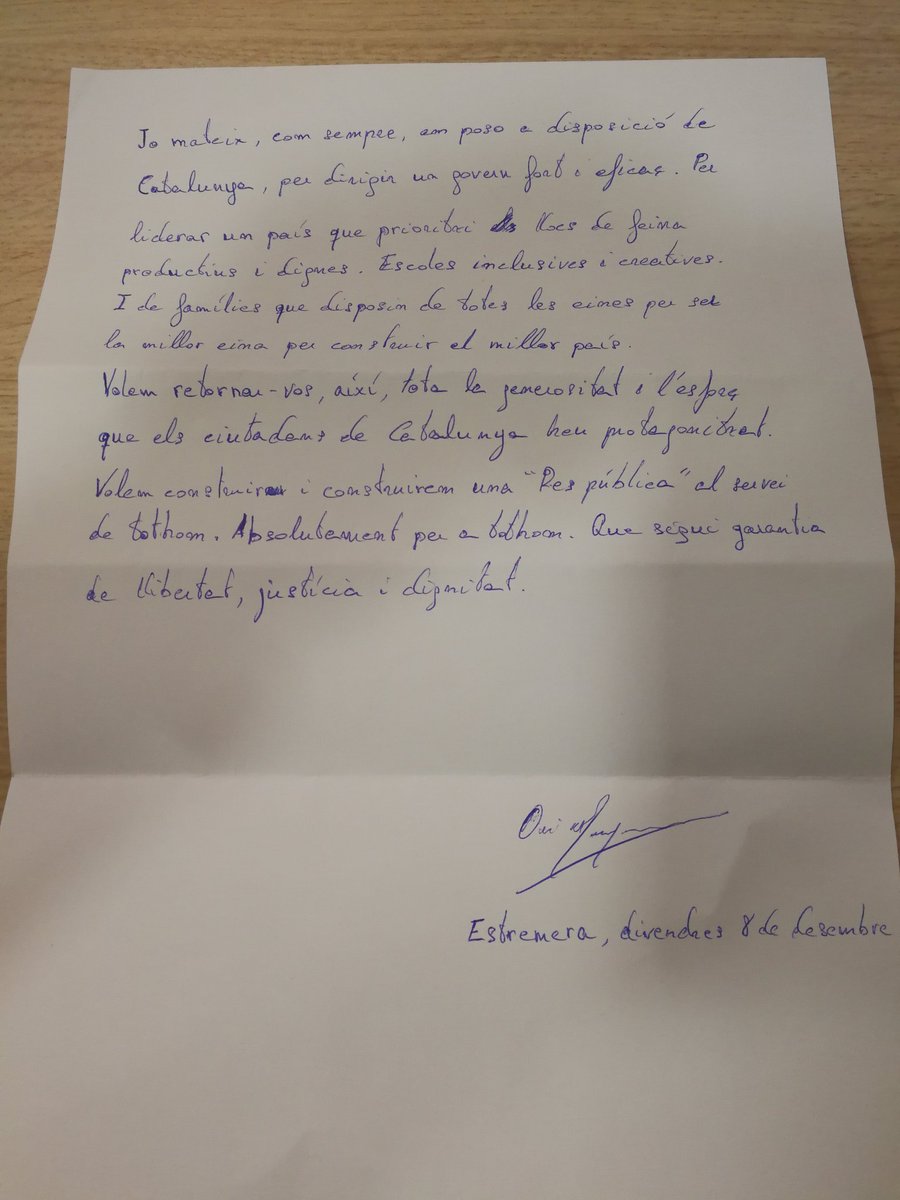 Jo mateix, com sempre, em poso a disposició de
Catalunya, per dirigir un govern fort i eficaç. Per
liderar un país que prioritzi llocs de feina
productius i dignes. Escoles inclusives i creatives.
I de famílies que disposin de totes les eines per ser
la millor eina per construir el millor país.
Volem retornar-vos, així, tota la generositat i l'esforç
que els ciutadans de Catalunya heu protagonitzat.
Volem construir i construirem una "Res pública" al servei
de tothom. Absolutament per a tothom. Que sigui garantia
de llibertat, justícia i dignitat.
Estremera, divendres 8 de desembre